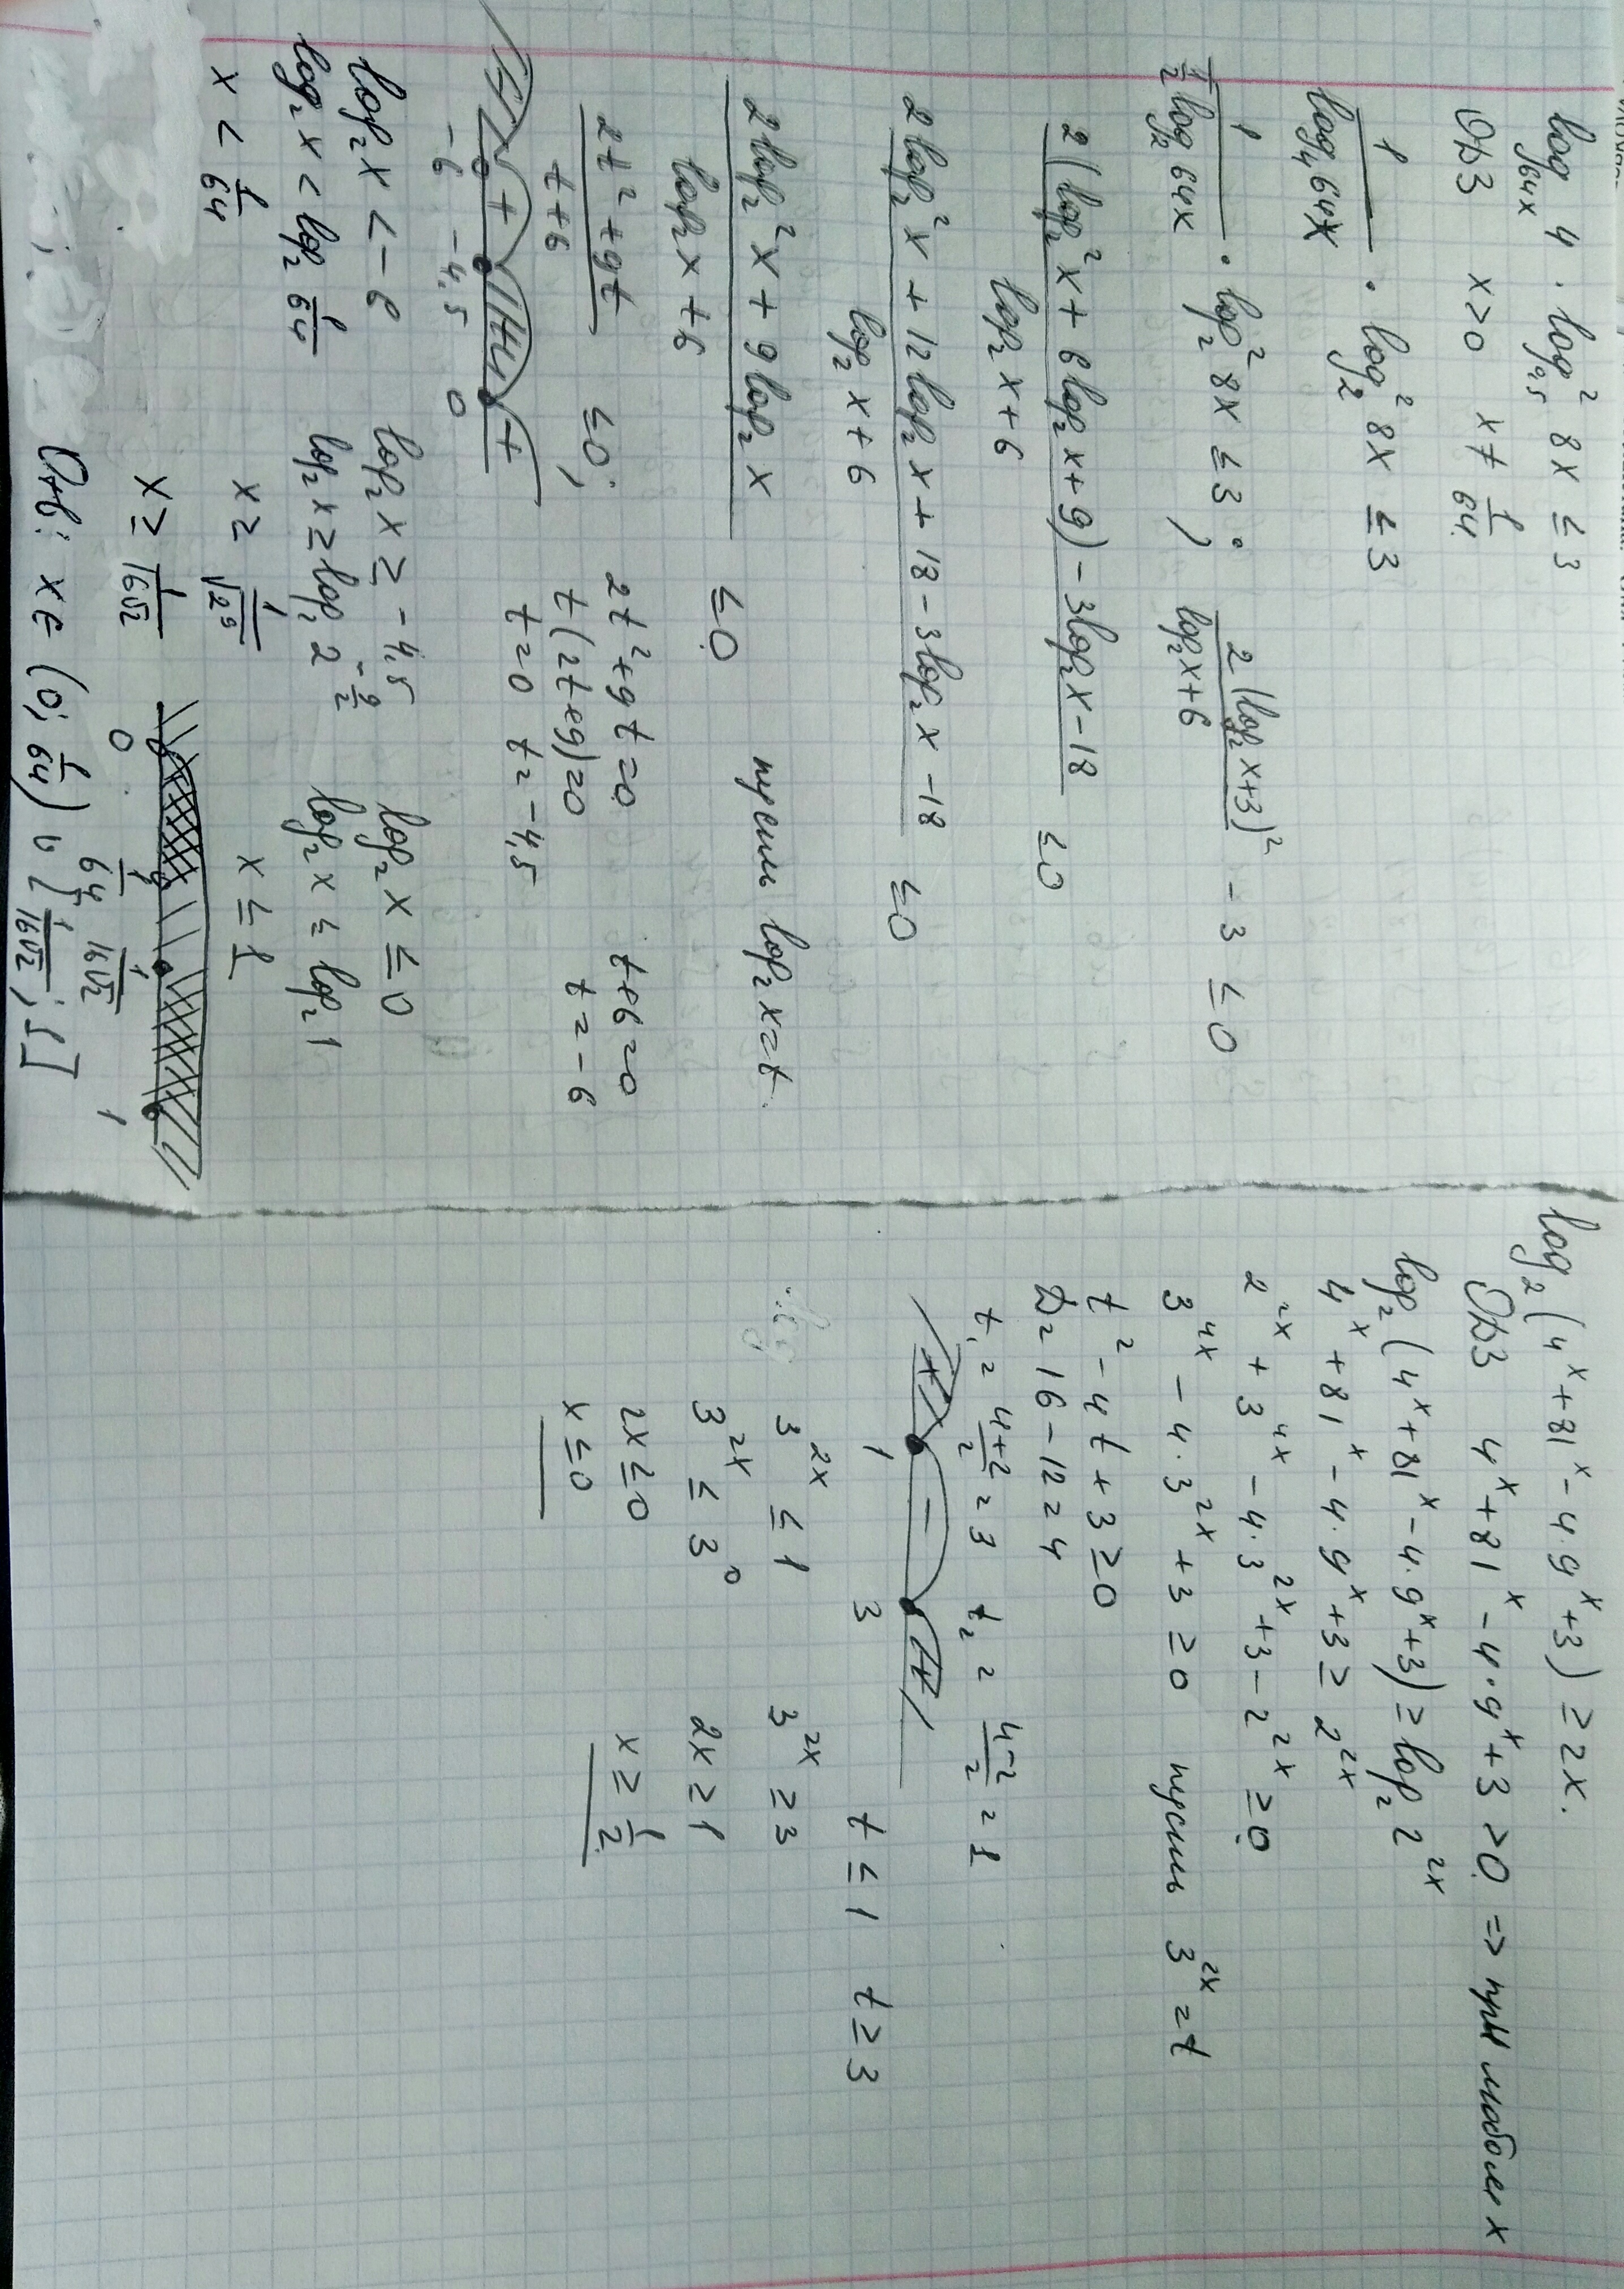 log₆₄ₓ 4 · log²₀,₅ 8x ≤ 3
ОДЗ x>0 x≠ 1/64
1/log₄64x · log₂² 8x ≤ 3
1/(1/2 log₂64x) · log₂² 8x ≤ 3 ; 2(log₂x+3)²/(log₂x+6) - 3 ≤ 0
(2(log₂²x + 6log₂x + 9) - 3log₂x - 18)/(log₂x+6) ≤ 0
(2log₂²x + 12log₂x + 18 - 3log₂x - 18)/(log₂x + 6) ≤ 0
(2log₂²x + 9log₂x)/(log₂x + 6) ≤ 0 пусть log₂x=t.
(2t² + 9t)/(t+6) ≤ 0; 2t²+9t=0 t+6=0
t(2t+9)=0 t=-6
t=0 t=-4,5
- + - +
-6 -4,5 0
log₂x < -6 log₂x ≥ -4,5 log₂x ≤ 0
log₂x < log₂ 1/64 log₂x ≥ log₂ 2^(-9/2) log₂x ≤ log₂1
x < 1/64 x ≥ 1/√2⁹ x ≤ 1
x ≥ 1/16√2
0 1/64 1/16√2 1
Отв: x∈ (0; 1/64) ∪ [1/16√2; 1]
log₂(4ˣ+81ˣ-4·9ˣ+3) ≥ 2x.
ОДЗ 4ˣ+81ˣ-4·9ˣ+3 >0 => при любом x
log₂(4ˣ+81ˣ-4·9ˣ+3) ≥ log₂ 2²ˣ
4ˣ+81ˣ-4·9ˣ+3 ≥ 2²ˣ
2²ˣ + 3⁴ˣ - 4·3²ˣ + 3 - 2²ˣ ≥ 0
3⁴ˣ - 4·3²ˣ + 3 ≥ 0 пусть 3²ˣ = t
t² - 4t + 3 ≥ 0
D = 16 - 12 = 4
t₁ = (4+2)/2 = 3 t₂ = (4-2)/2 = 1
+ - +
1 3 t ≤ 1 t ≥ 3
3²ˣ ≤ 1 3²ˣ ≥ 3
3²ˣ ≤ 3⁰ 2x ≥ 1
2x ≤ 0 x ≥ 1/2
x ≤ 0